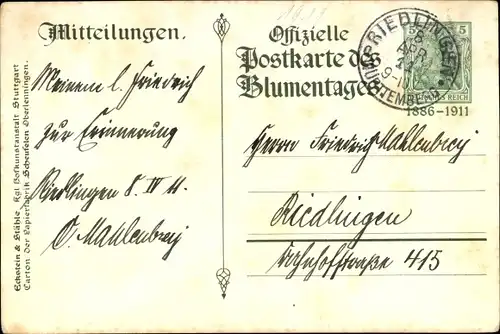 Mitteilungen.
Meinem l. Friedrich
zur Erinnerung
Riedlingen 8. IV 11.
O. Mahlenbrey
Eckstein & Stähle, Kgl. Hofkunstanstalt Stuttgart
Carton der Papierfabrik Scheufelen Oberlenningen.
Offizielle
Postkarte des
Blumentages
1886-1911
RIEDLINGEN
8
APR
WÜRTTEMBERG
5
REICH
Herrn Friedrich Mahlenbrey
Riedlingen
Bahnhofstraße 415